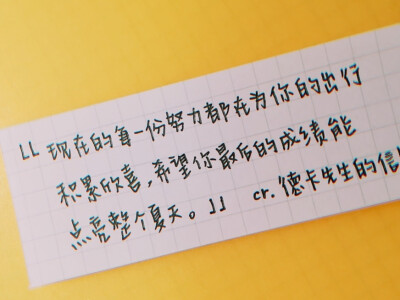 “现在的每一份努力都在为你的出行
积累欣喜,希望你最后的成绩能
点亮整个夏天。” cr.德卡先生的信